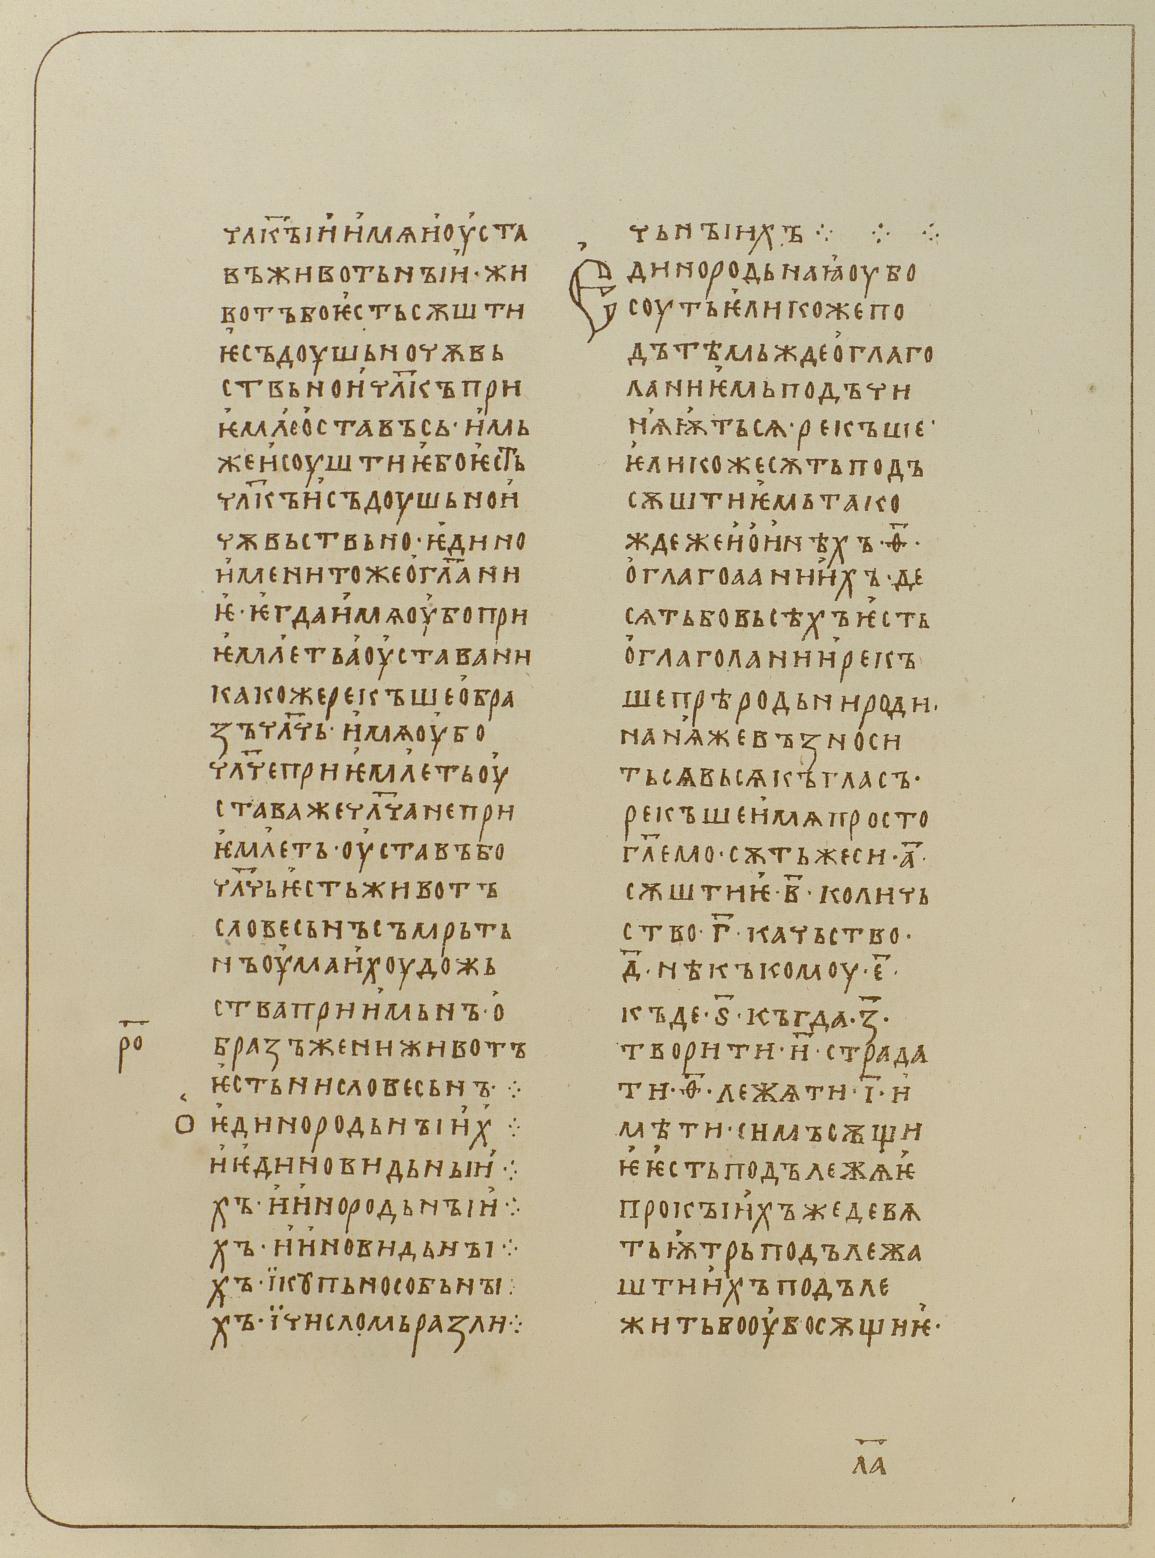 чл҃къıи имѧ и оуста
въ животьнъıи · жи
вотъ бо ѥсть сѫшти
ѥ съдоушьно чѫвь
ствьно и чл҃къ при
ѥмлѥ о ставъ сь · имь
же и соуштиѥ бо ѥсть
чл҃къ и съдоушьно и
чѫвьствьно · ѥдино
имени тоже огл҃ани
ѥ · ѥгда имѧ оубо при
ѥмлеть а оустава ни
како же рекъше обра
зъ чл҃чь · имѧ оубо
чл҃че приѥмлеть оу
става же чл҃ча не при
ѥмлеть · оуставъ бо
чл҃чь ѥсть животъ
словесьнъ съмрьть
нъ оума и хоудожь
ства приимьнъ · о
бразъ же ни животъ
ѥсть ни словесьнъ · ⁘
р҃о
О ѥдинородьнъıих ⁘
и ѥдиновидьныи ⁘
хъ · и инородьнъıи ⁘
хъ · и иновидьнъı ⁘
хъ · ї кꙋпьноособьнъı ⁘
хъ · ї числомь разли ⁘
чьнъıихъ ⁘ ⁘ ⁘
Єдинородьнаꙗ оубо
соуть ѥлико же по
дъ тѣмьжде оглаго
ланиѥмь подъчи
нꙗѭтьсѧ · рекъше ·
ѥлико же сѫть подъ
сѫштиѥмь тако
жде же и о инѣхъ · ѳ҃ ·
оглагоааниихъ · де
сѧть бо вьсѣхъ ѥсть
оглаголании рекъ
ше прѣродьни роди ·
на нѧже възноси
тьсѧ вьсѧкъ гласъ ·
рекъше имѧ просто
гл҃емо · сѫть же си · а҃ ·
сѫштиѥ · в҃ · количь
ство · г҃ · качьство ·
д҃ · нѣкъкомоу · е҃ ·
къде · ѕ҃ · къгда · з҃ ·
творити · и҃ · страда
ти · ѳ҃ · лежѧти · ı҃ · и
мѣти · симъ сѫщи
ѥ ѥсть подълежѧѥ
прокъıихъ же девѧ
тьѭтрь подълежа
штиихъ подъле
жить во оубо сѫщиѥ ·
л҃а